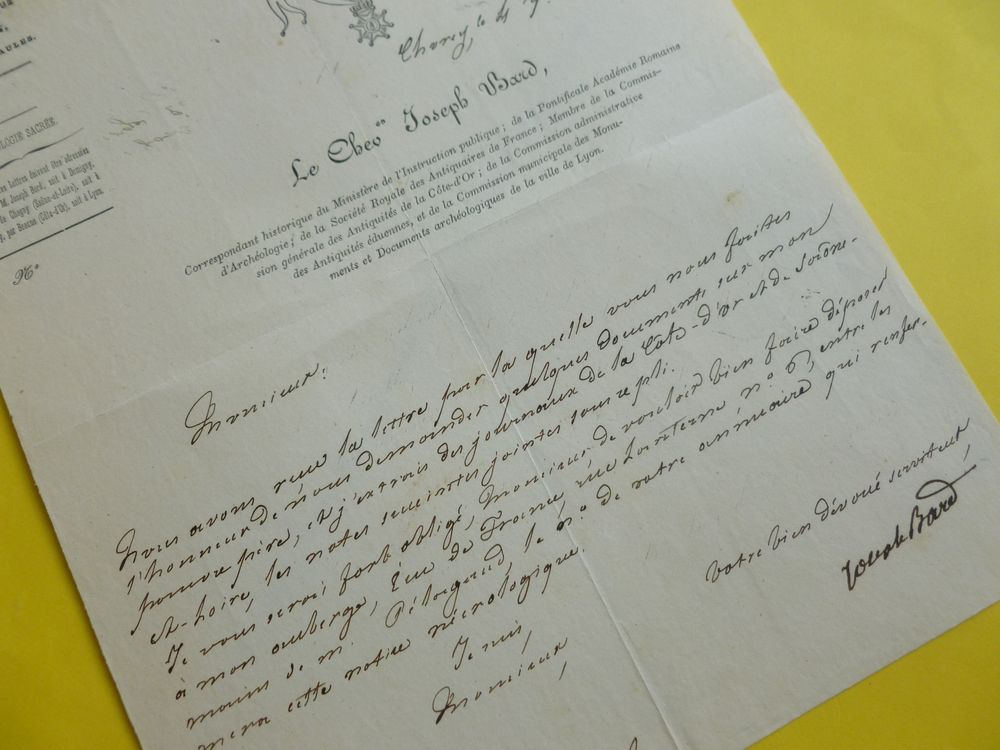 AULES.
OLOGIE SACRÉE.
es lettres doivent être adressées
M. Joseph Bard, soit à Demigny,
Chagny (Saône-et-Loire), soit à
par Beaune (Côte-d'Or), soit à Lyon.
N°
Chorey, le 4
Le Cheer Joseph Bard,
Correspondant historique du Ministère de l'Instruction publique; de la Pontificale Académie Romaine
d'Archéologie; de la Société Royale des Antiquaires de France; Membre de la Commis-
sion générale des Antiquités de la Côte-d'Or; de la Commission administrative
des Antiquités éduennes, et de la Commission municipale des Monu-
ments et Documents archéologiques de la ville de Lyon.
Monsieur,
Nous avons reçu la lettre par laquelle vous faites
l'honneur de nous demander quelques documents sur mon
pauvre père, et j'extrais des journaux de la Côte-d'Or et de Saône-
et-Loire, les notes suivantes jointes sous ce pli.
Je vous serai fort obligé, Monsieur de vouloir bien faire déposer
à mon auberge, de France, rue n.o 6, entre les
mains de M. le n.o de votre annuaire qui renfer-
mera cette notice nécrologique.
Je suis,
Monsieur,
votre bien dévoué serviteur,
Joseph Bard